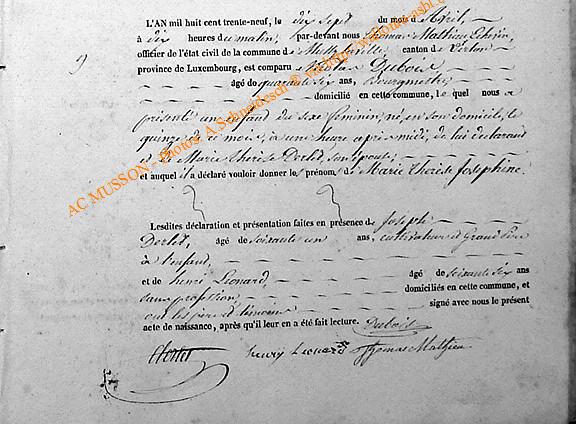 L'AN mil huit cent trente-neuf, le dix Sept du mois d'Avril,
à dix heures du matin, par-devant nous Thomas Mathieu
officier de l'état civil de la commune de canton de Virton
province de Luxembourg, est comparu Nicolas Dubois
âgé de quarante six ans, Bourgmestre,
domicilié en cette commune, le quel nous a
présenté un enfant du sexe féminin, né, en son domicile, le
quinze de ce mois, à une heure après midi, de lui déclarant
et de Marie thérèse Derlet, son épouse,
et auquel il a déclaré vouloir donner le prénom, de Marie Thérèse Josephine.
Lesdites déclaration et présentation faites en présence de Joseph
Derlet, âgé de soixante un ans, cultivateur et Grand Père
à l'enfant,
et de henri Léonard, âgé de soixante six ans
sans profession, domiciliés en cette commune, et
ont les père et témoins signé avec nous le présent
acte de naissance, après qu'il leur en a été fait lecture. Dubois
henry Leonard Thomas Mathieu
AC MUSSON - Photos: A.Schneidesch ©